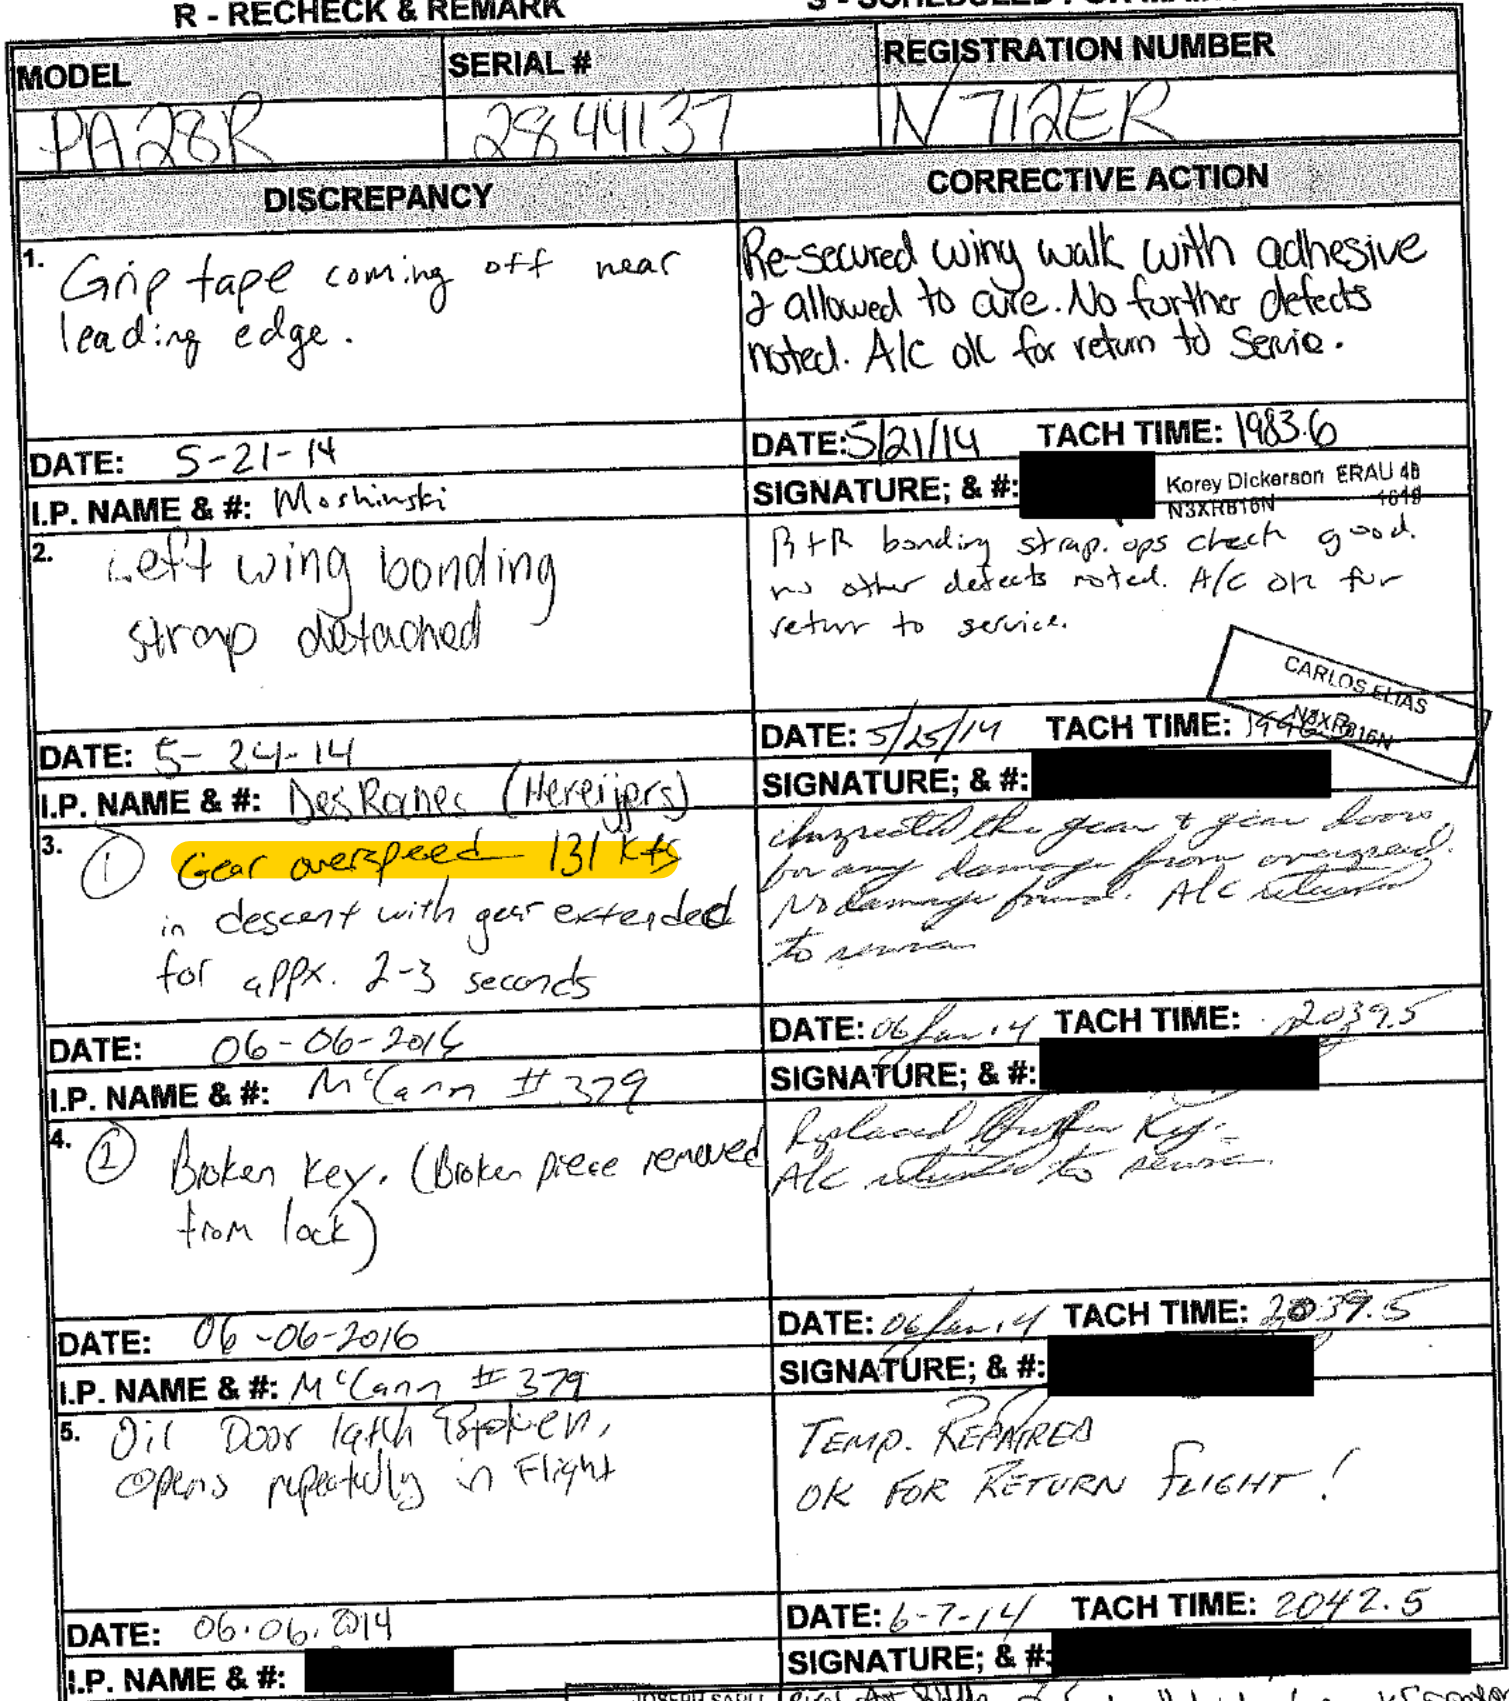 R - RECHECK & REMARK
MODEL SERIAL # REGISTRATION NUMBER
PA28R 2844137 N712ER
DISCREPANCY CORRECTIVE ACTION
1. Grip tape coming off near
leading edge.
Re-secured wing walk with adhesive
& allowed to cure. No further defects
noted. A/C ok for return to Servie.
DATE: 5-21-14
DATE: 5/21/14 TACH TIME: 1983.6
I.P. NAME & #: Moshinski
SIGNATURE; & #: Korey Dickerson ERAU 4B
N3XRB16N 1619
2. Left wing bonding
strap detached
R+R bonding strap. ops check good.
no other defects noted. A/C ok for
return to service.
CARLOS ELIAS
N3XRB16N
DATE: 5-24-14
DATE: 5/25/14 TACH TIME:
I.P. NAME & #: (Hereijgers)
SIGNATURE; & #:
3. 1 Gear overspeed 131 kts
in descent with gear extended
for appx. 2-3 seconds
Inspected the gear & gear doors
for any damage from overspeed.
No damage found. A/C returned
to service
DATE: 06-06-2014
DATE: 06 Jun 14 TACH TIME: 2039.5
I.P. NAME & #: McCann #379
SIGNATURE; & #:
4. 2 Broken key. (Broken piece removed
from lock)
Replaced Broken Key.
A/C returned to service.
DATE: 06-06-2016
DATE: 06 Jun 14 TACH TIME: 2039.5
I.P. NAME & #: McCann #379
SIGNATURE; & #:
5. Oil Door latch Broken,
opens repeatedly in Flight
TEMP. REPAIRED
OK FOR RETURN FLIGHT!
DATE: 06.06.2014
DATE: 6-7-14 TACH TIME: 2042.5
I.P. NAME & #:
SIGNATURE; & #: